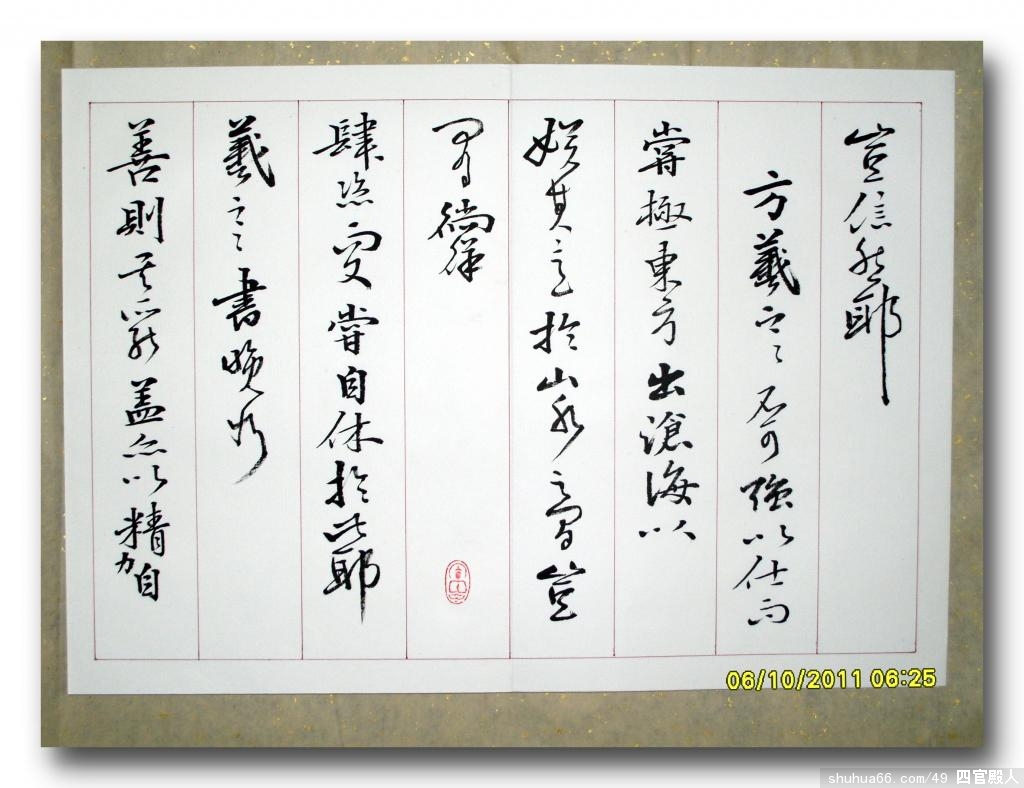 豈信然耶
方羲之之不可強以仕而
嘗極東方出滄海以
娱其意於山水之間豈
有徜徉
肆恣而又嘗自休於此耶
羲之之書晚乃
善則其所能盖亦以精力自
06/10/2011 06:25
shuhua66.com/49 四官殿人